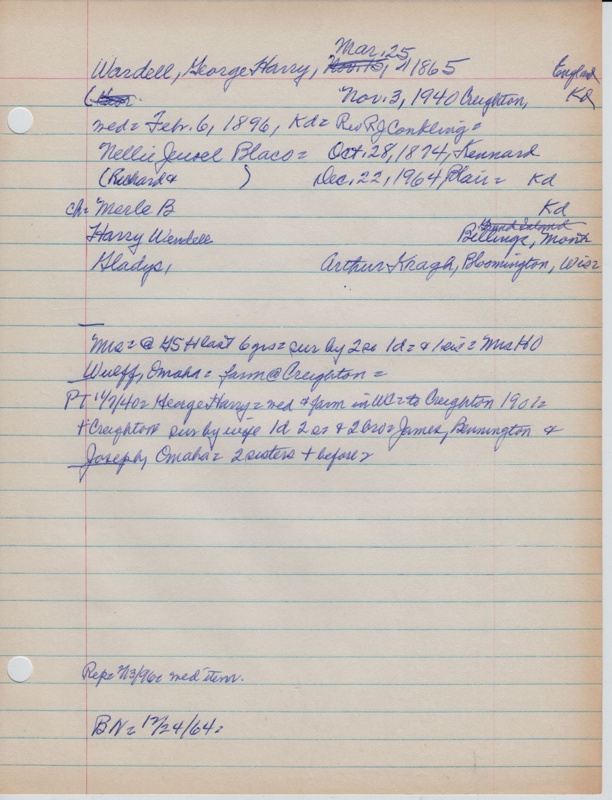 Mar. 25
Wardell, George Harry, Nov. 15, 1865 England
( Nov. 3, 1940 Creighton, Kd
med= Febr. 6, 1896, Kd= Rev R J Conkling=
Nellie Jewel Blaco= Oct. 28, 1874, Kennard
(Richard & ) Dec. 22, 1964, Blair= Kd
ch= Merle B Kd
Grand Island
Harry Wardell Billings, Mont=
Gladys, Arthur Kragh, Bloomington, Wis=
Mrs= @ H last 6 yrs= sur by 2 so 1d= & 1 sis= Mrs H O
Wulff, Omaha= farm @ Creighton=
PT 11/7/40= George Harry= med & farm in WC= to Creighton 1901=
+ Creighton= sur by wife 1d 2 so & 2 bro= James, Bennington &
Joseph, Omaha= 2 sisters + before=
Rep= 2/13/96= med item.
BN= 12/24/64=